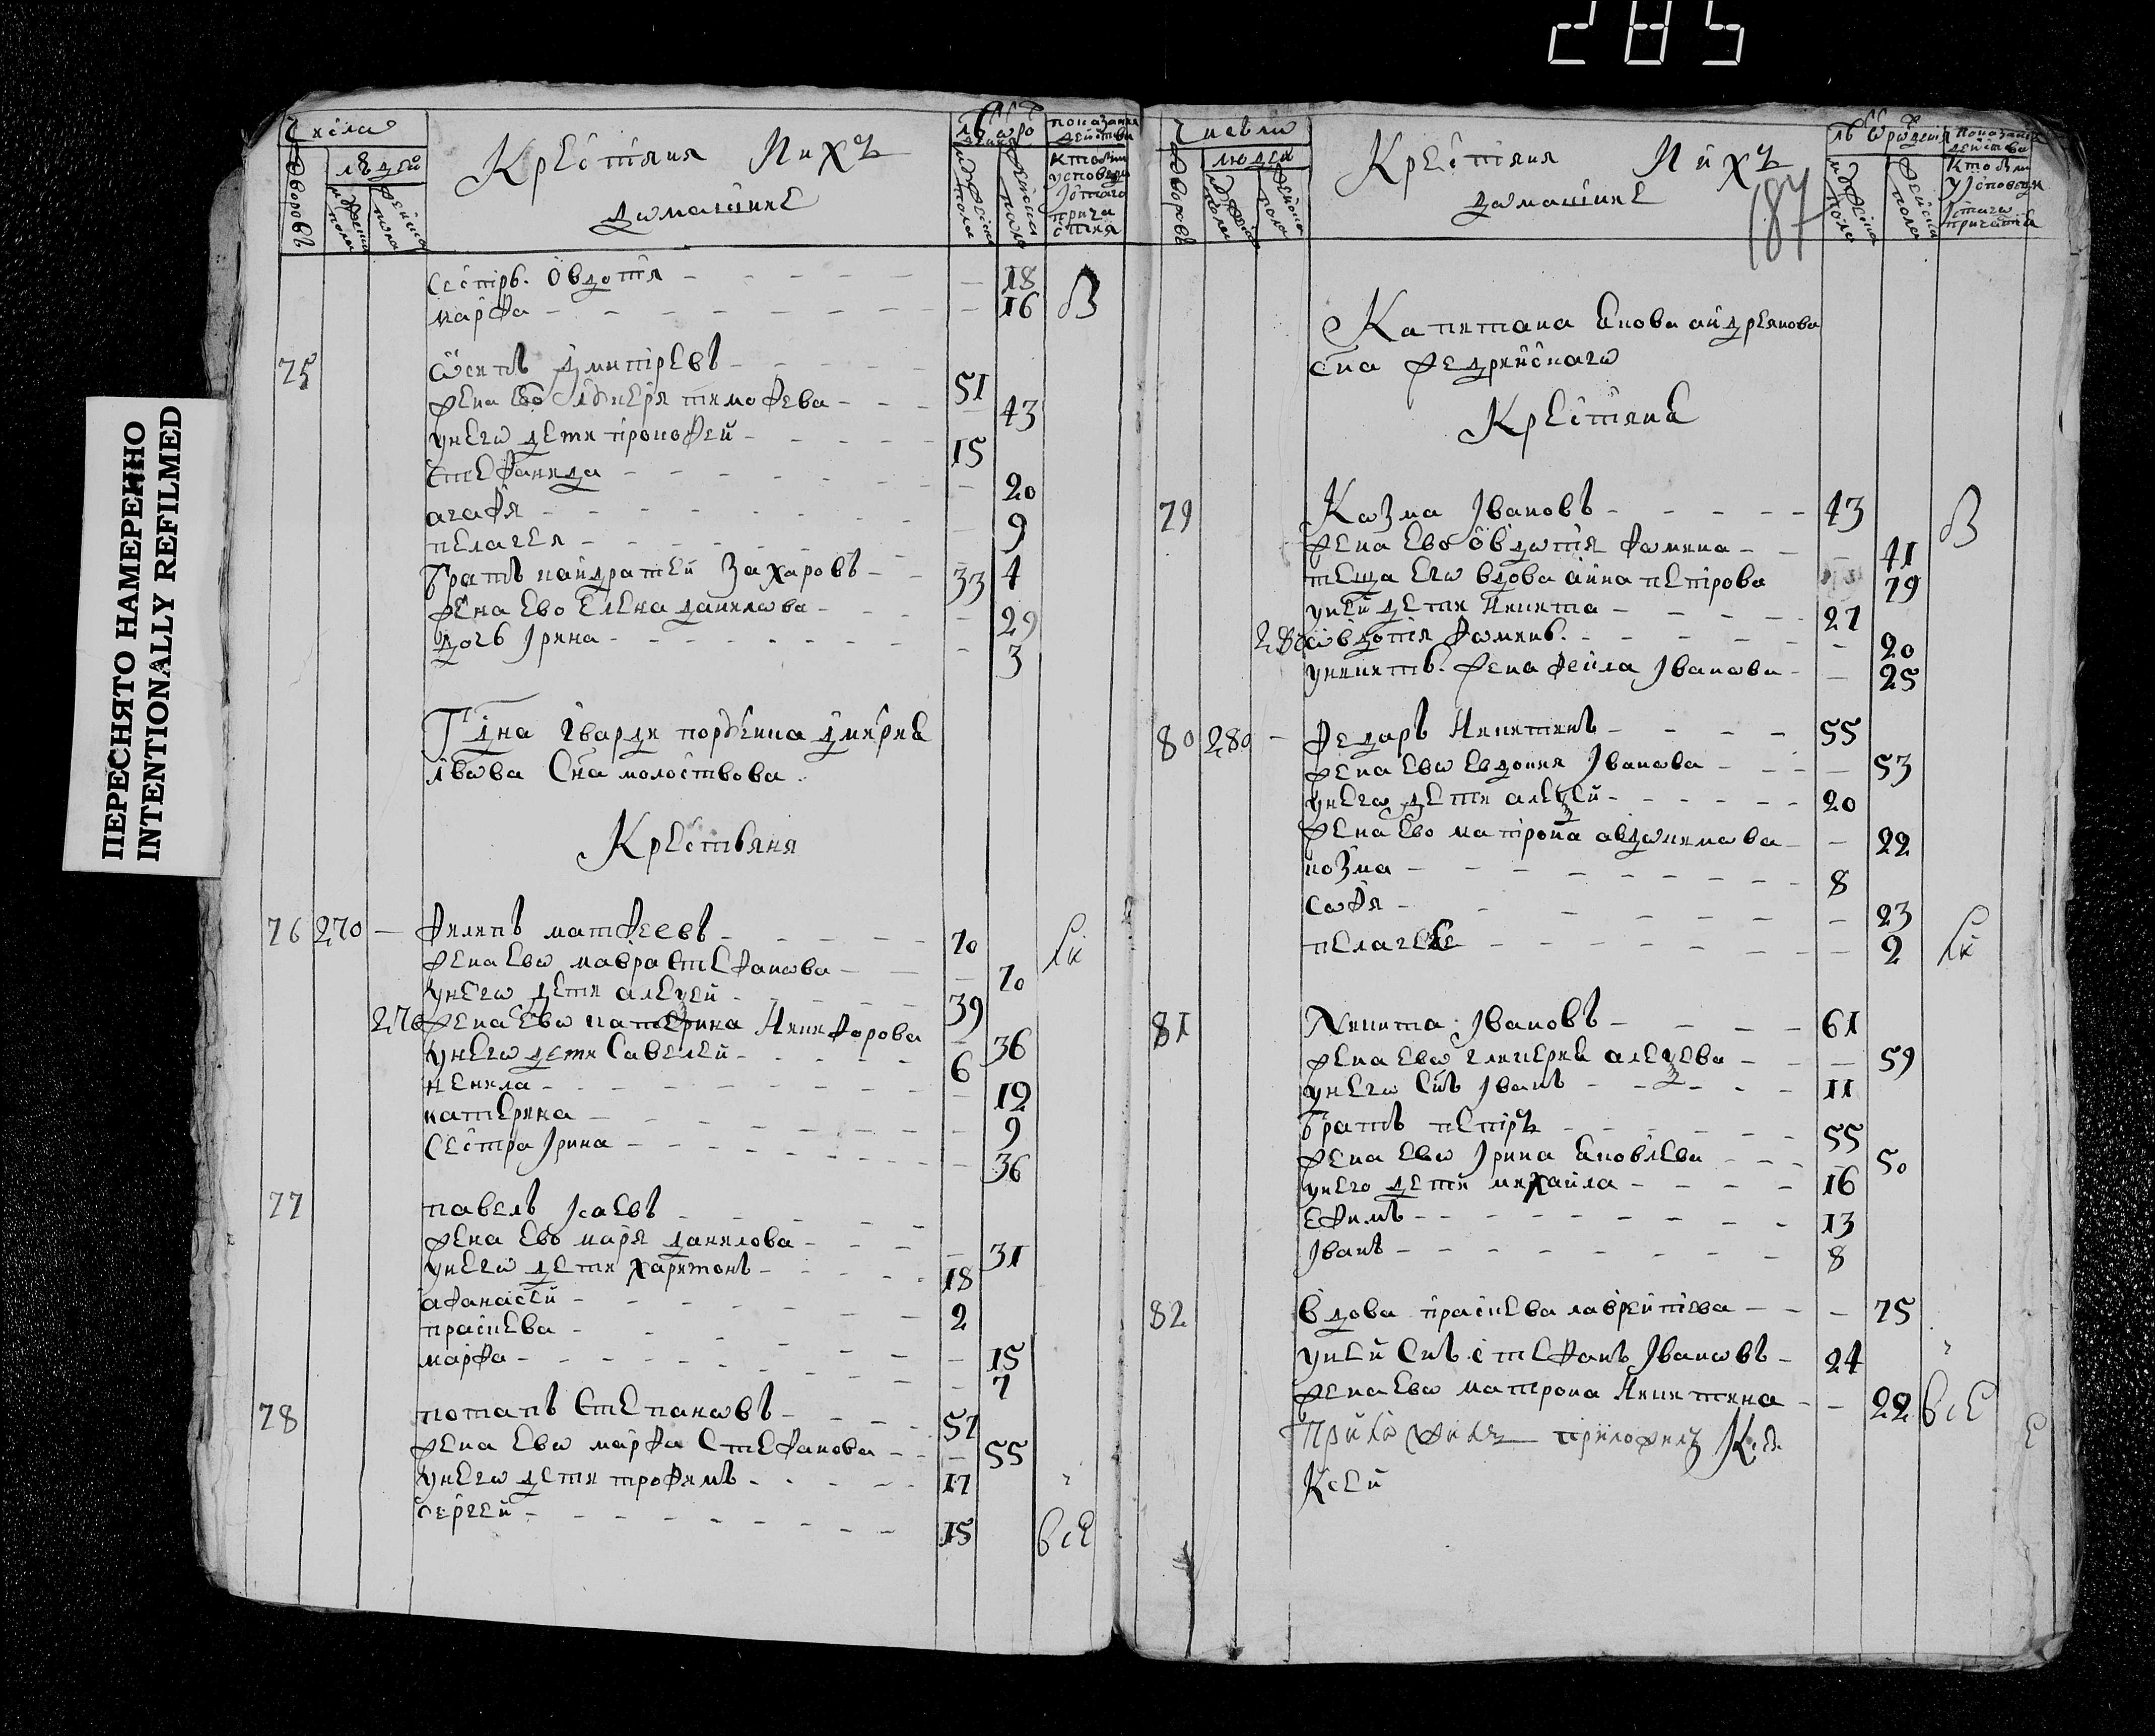 285
ПЕРЕСНЯТО НАМЕРЕННО
INTENTIONALLY REFILMED
Числа
дворовъ
людей
мужеска пола
женска пола
Крестяня Ихъ
домашние
Лѣта ѿ рождения
мужеска пола
женска пола
показание действа
кто былъ у исповеди
и с̃таго причастия
сестрꙋ Овдотя 18
марфа 16 В
75 Ѡсипъ Дмитревъ 51
жена ево Лꙋкеря тимофева 43
у него дети прокофей 15
стефанида 20
агафя 9
пелагея 4
братъ кандратей Захаровъ 33
жена ево Елена данилова 29
дочь Ірина 3
Г̃дна Гварди порꙋтчика Дмитрея
лвова С̃на молоствова
Крестьяня
76 270 Филипъ матфеевъ 70 Ѣк
жена евѡ мавра Стефанова 70
у негѡ дети алеѯей 39
276 жена евѡ катерина Никифорова 36
у негѡ дети Савелей 6
ненила 12
катерина 9
Сестра Ірина 36
77 павелъ Ісаевъ
жена ево маря данилова 31
у негѡ дети харитонъ 18
афанасей 2
праскева 15
марфа 7
78 потапъ Степанѡвъ 57
жена евѡ марфа Стефанова 55
у негѡ дети трофимъ 17
сергей 15 все
Числа
дворовъ
людей
мужеска пола
женска пола
Крестяня И ихъ
домашние
187
Лѣта ѿ рождения
мужеска пола
женска пола
показание действа
кто былъ у исповеди
и с̃таго причастия
Капитана Якова андреянова
с̃на
Крестяне
79 Казма Івановъ 43 В
жена ево Овдотя фомина 41
теща егѡ вдова анна петрова 79
у ней дети Никита 27
280 ѡвдотя фоминꙋ 20
у никитꙋ жена фекла Іванова 25
80 280 Федаръ Никитинъ 55
жена евѡ евдокия Іванова 53
у негѡ дети алеѯей 20
жена ево матрона авдокимова 22
козма 8
софя 23
пелагея 2 Ѣк
81 Никита Івановъ 61
жена евѡ гликерия алеѯева 59
у негѡ С̃нъ Іванъ 11
братъ петръ 55
жена евѡ Ірина Яковлева 50
у него дети михаила 16
ефимъ 13
Іванъ 8
82 вдова праскева лаврентиева 75
у ней С̃нъ стефанъ Іванѡвъ 24
жена евѡ матрона Никитина 22 все